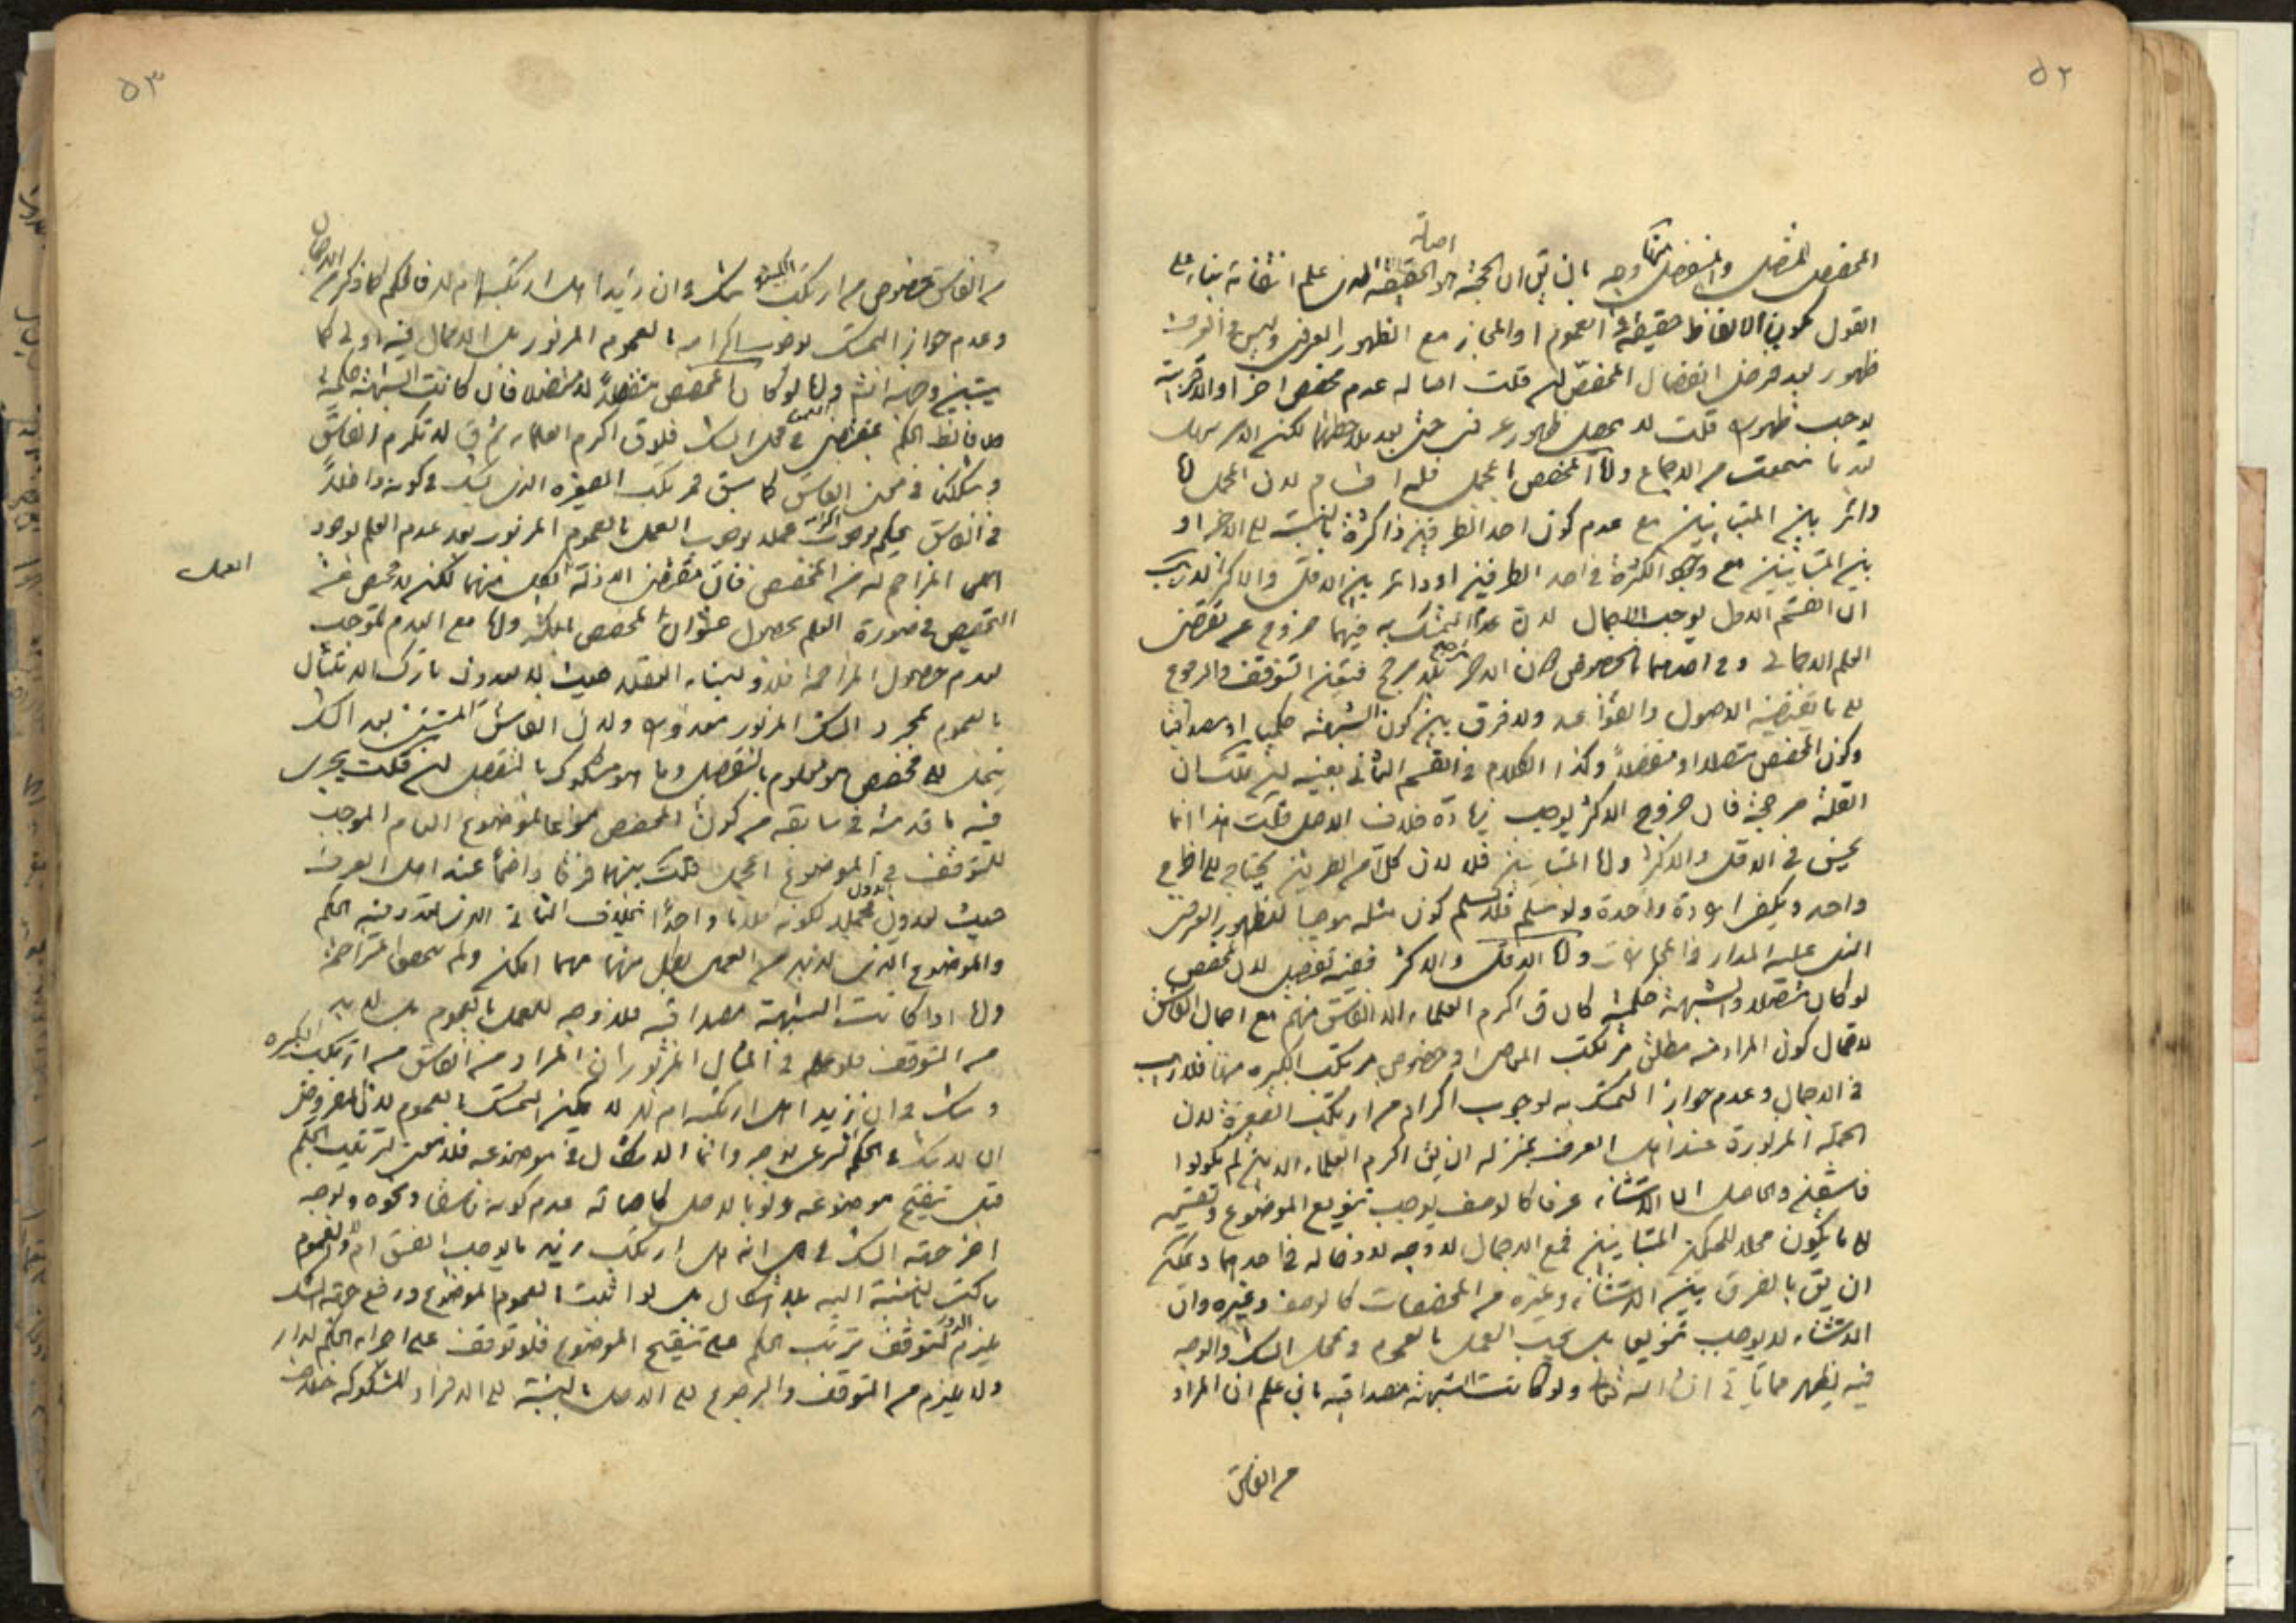 ٥٢
المخصص المتصل والمنفصل وجه بان يق ان الحجة اصالة الحقيقة بناء على
القول بكون الالفاظ حقيقة في العموم او المجاز مع الظهور العرفى وليس في العرف
ظهور بعد فرض انفصال المخصص فان قلت اصالة عدم مخصص اخر او القرينة
يوجب ظهوره قلت لا يحصل ظهور عرفى حتى بعد ملاحظتها لكن الامر سهل
بعد ما سمعت من الاجماع واما المخصص المجمل فله اقسام لان المجمل اما
دائر بين المتباينين مع عدم كون احد الطرفين ذا كثرة بالنسبة الى الاخر او
بين المتباينين مع وجود الكثرة في احد الطرفين او دائر بين الاقل والاكثر لا ريب
ان القسم الاول يوجب الاجمال لان عدم التمسك به فيهما خروج عن مقتضى
العلم الاجمالى وفى احدهما بالخصوص دون الاخر ترجيح بلا مرجح فتعين التوقف والرجوع
الى ما يقتضيه الاصول والقواعد ولا فرق بين كون الشبهة حكمية او مصداقية
وكون المخصص متصلا او منفصلاً وكذا الكلام في القسم الثانى بعينه فان قلت ان
القلة مرجحة فان خروج الاكثر يوجب زيادة خلاف الاصل قلت هذا انما
يحسن في الاقل والاكثر واما المتباينين فلا لان كلا من الطرفين يحتاج الى اخراج
واحد ويكفى ارادة واحدة ولو سلم فلا نسلم كون مثله موجبا للظهور العرفى
الذى عليه المدار في المجازات واما الاقل والاكثر ففيه تفصيل لان المخصص
لو كان متصلا والشبهة حكمية كان ق اكرم العلماء الا الفاسق منهم مع اجمال الفاسق
لاحتمال كون المراد منه مطلق مرتكب المعاصى او خصوص مرتكب الكبيرة منها فلا ريب
في الاجمال وعدم جواز التمسك به لوجوب اكرام من ارتكب الصغيرة لان
الجملة المزبورة عند اهل العرف بمنزلة ان يق اكرم العلماء الذين لم يكونوا
فاسقين والحاصل ان الاستثناء عرفا كالوصف يوجب تنويع الموضوع وتقسيمه
الى ما يكون محلا للحكمين المتباينين فمع الاجمال لا وجه لادخاله في احدهما ويمكن
ان يق بالفرق بين الاستثناء وغيره من المخصصات كالوصف وغيره وان
الاستثناء لا يوجب تنويعا بل يجب العمل بالعموم في محل الشك والوجه
فيه يظهر مما ياتى في انشاء الله تعالى ولو كانت الشبهة مصداقية بان علم ان المراد
من الفاسق
٥٣
من الفاسق خصوص من ارتكب الكبيرة وشك في ان زيدا هل ارتكبها ام لا فالحكم كما ذكر من الاجمال
وعدم جواز التمسك لوجوب اكرامه بالعموم المزبور بل الاجمال فيه اولى كما
سيتبين وجهه انشه واما لو كان المخصص منفصلاً لا متصلا فان كانت الشبهة حكمية
فالظ الحكم بمقتضى العموم في محل الشك فلو ق اكرم العلماء ثم ق لا تكرم الفاسق
وشككنا في معنى الفاسق كما سبق فمرتكب الصغيرة الذى يشك في كونه داخلاً
في الفاسق يحكم بوجوب اكرامه عملا بوجوب العمل بالعموم المزبور بعد عدم العلم بوجود
المزاحم له من المخصص فان مقتضى الادلة العمل بكل منهما لكنه لا محيص عن
التخصيص في صورة العلم بحصول عنوان المخصص للكثير واما مع العدم لا توجب
لعدم حصول المزاحمة فلا ولبناء العقلاء حيث لا يعدون تارك الامتثال
بالعموم بمجرد الشك المزبور معذورا ولان الفاسق المستثنى بعد الشك
ينحل الى مخصص هو معلوم بالتفصيل وما هو مشكوك بالتفصيل فان قلت يجرى
فيه ما قدمته في سابقه من كون المخصص منوعا لموضوع العام الموجب
للتوقف في الموضوع المجمل قلت بينهما فرقا واضحا عند اهل العرف
حيث يعدون الاول مجملا لكونه كلاما واحدًا بخلاف الثانى الذى تعدد فيه الحكم
والموضوع الذى لا بد من العمل بكل منهما مهما امكن ولم يتحقق المزاحمة
واما اذا كانت الشبهة مصداقية فلا وجه للعمل بالعموم بل لا بد
من التوقف فلو علم في المثال المزبور ان المراد من الفاسق من ارتكب الكبيرة
وشك في ان زيدا هل ارتكبه ام لا لا يمكن التمسك بالعموم لان المفروض
ان لا شك في الحكم الشرعى بوجه وانما الاشكال في موضوعه فلا معنى لترتيب الحكم
قبل تنقيح موضوعه ولو بالاصل كاصالة عدم كونه فاسقا ونحوه ولو جه
اخر جهة الشك في انه هل ارتكب زيد ما يوجب الفسق ام لا والعموم
ساكت بالنسبة اليه بلا اشكال بل لو اثبت بالعموم الموضوع ورفع جهة الشك
يلزم الدور لتوقف ترتب الحكم على تنقيح الموضوع فلو توقف على اجراء الحكم لدار
ولا يلزم من التوقف والرجوع الى الاصل بالنسبة الى الافراد المشكوكة خلاف
العمل